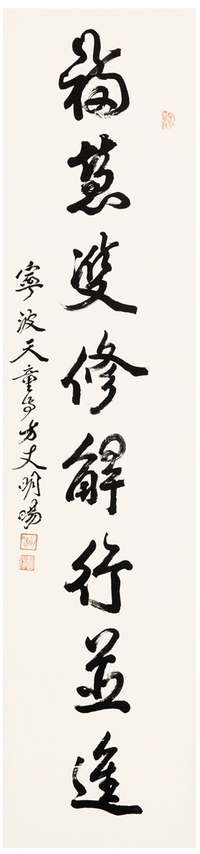 福慧雙修解行並進
寧波天童寺方丈明暘